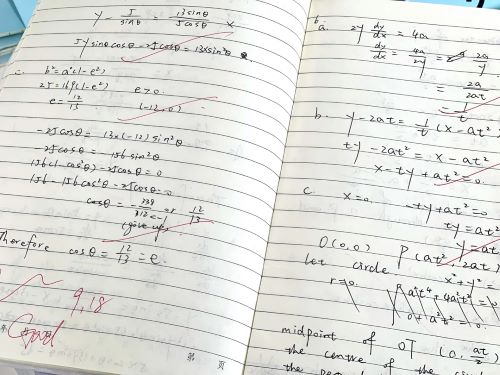 y - 5/sinθ = 13sinθ/5cosθ x
5y sinθcosθ - 25cosθ = 13x sin²θ
b² = a²(1-e²)
25 = 169(1-e²) e>0
e = 12/13 (-12, 0)
-25cosθ = 13×(-12) sin²θ
-25cosθ = 156 sin²θ
156(1-cos²θ) - 25cosθ = 0
156 - 156cos²θ - 25cosθ = 0
cosθ = <-1 or 12/13
(give up)
Therefore cosθ = 12/13 = e.
9,18
Good
第 页
6
a. 2y dy/dx = 4a
dy/dx = 4a/2y = 2a/y
= 2a/2at
= 1/t
b. y - 2at = 1/t (x - at²
ty - 2at² = x - at²
x - ty + at² = 0.
c x = 0. -ty + at² = 0
ty = at²
y = at
O(0,0) P(at², 2at)
let circle x² + y² =
r = 0. a²t⁴ + 4a²t² =
0 + a²t² = 0.
midpoint of OT (0, at/2
the centre of the